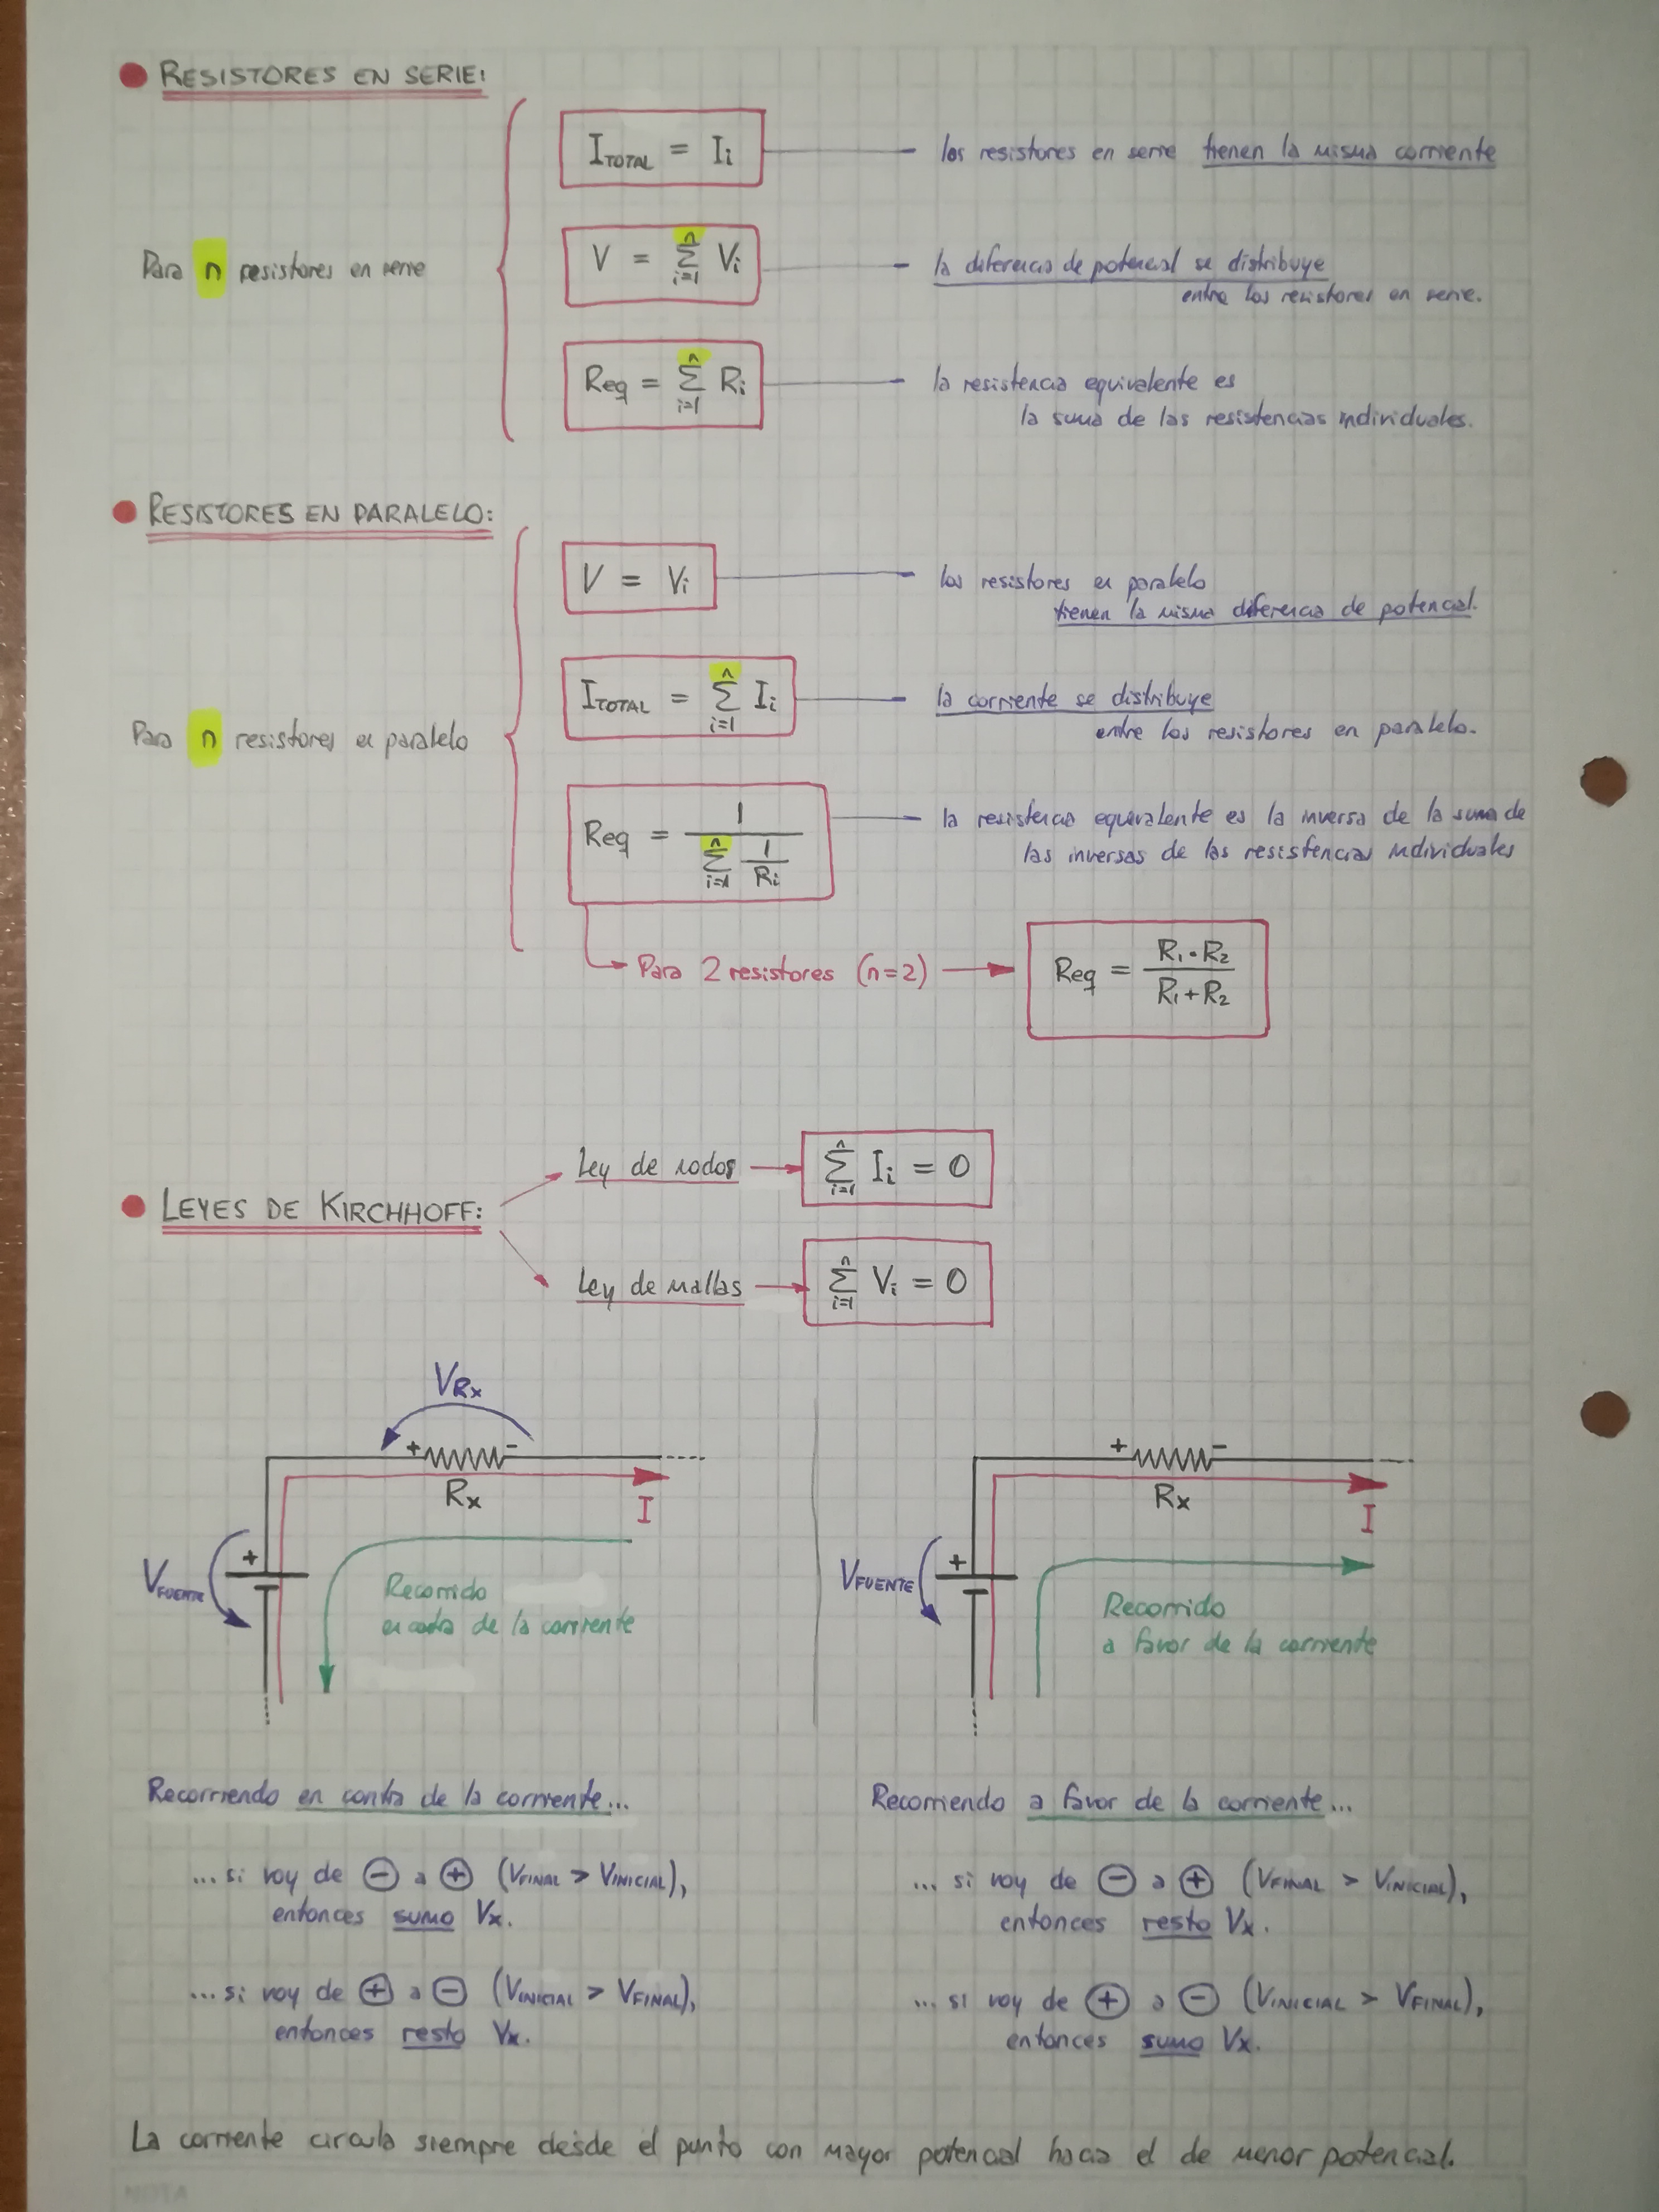 RESISTORES EN SERIE:
I_TOTAL = I_i
los resistores en serie tienen la misma corriente
Para n resistores en serie
V = Σ_{i=1}^{n} V_i
la diferencia de potencial se distribuye
entre los resistores en serie.
Req = Σ_{i=1}^{n} R_i
la resistencia equivalente es
la suma de las resistencias individuales.
RESISTORES EN PARALELO:
V = V_i
los resistores en paralelo
tienen la misma diferencia de potencial.
Para n resistores en paralelo
I_TOTAL = Σ_{i=1}^{n} I_i
la corriente se distribuye
entre los resistores en paralelo.
Req = 1 / Σ_{i=1}^{n} 1/R_i
la resistencia equivalente es la inversa de la suma de
las inversas de las resistencias individuales
Para 2 resistores (n=2)
Req = R_1 · R_2 / R_1 + R_2
LEYES DE KIRCHHOFF:
Ley de nodos
Σ_{i=1}^{n} I_i = 0
Ley de mallas
Σ_{i=1}^{n} V_i = 0
V_Rx
+ -
R_x
I
V_FUENTE
+
Recorrido
en contra de la corriente
+ -
R_x
I
V_FUENTE
+
Recorrido
a favor de la corriente
Recorriendo en contra de la corriente...
...si voy de ⊖ a ⊕ (V_FINAL > V_INICIAL),
entonces sumo Vx.
...si voy de ⊕ a ⊖ (V_INICIAL > V_FINAL),
entonces resto Vx.
Recorriendo a favor de la corriente...
... si voy de ⊖ a ⊕ (V_FINAL > V_INICIAL),
entonces resto Vx.
... si voy de ⊕ a ⊖ (V_INICIAL > V_FINAL),
entonces sumo Vx.
La corriente circula siempre desde el punto con mayor potencial hacia el de menor potencial.